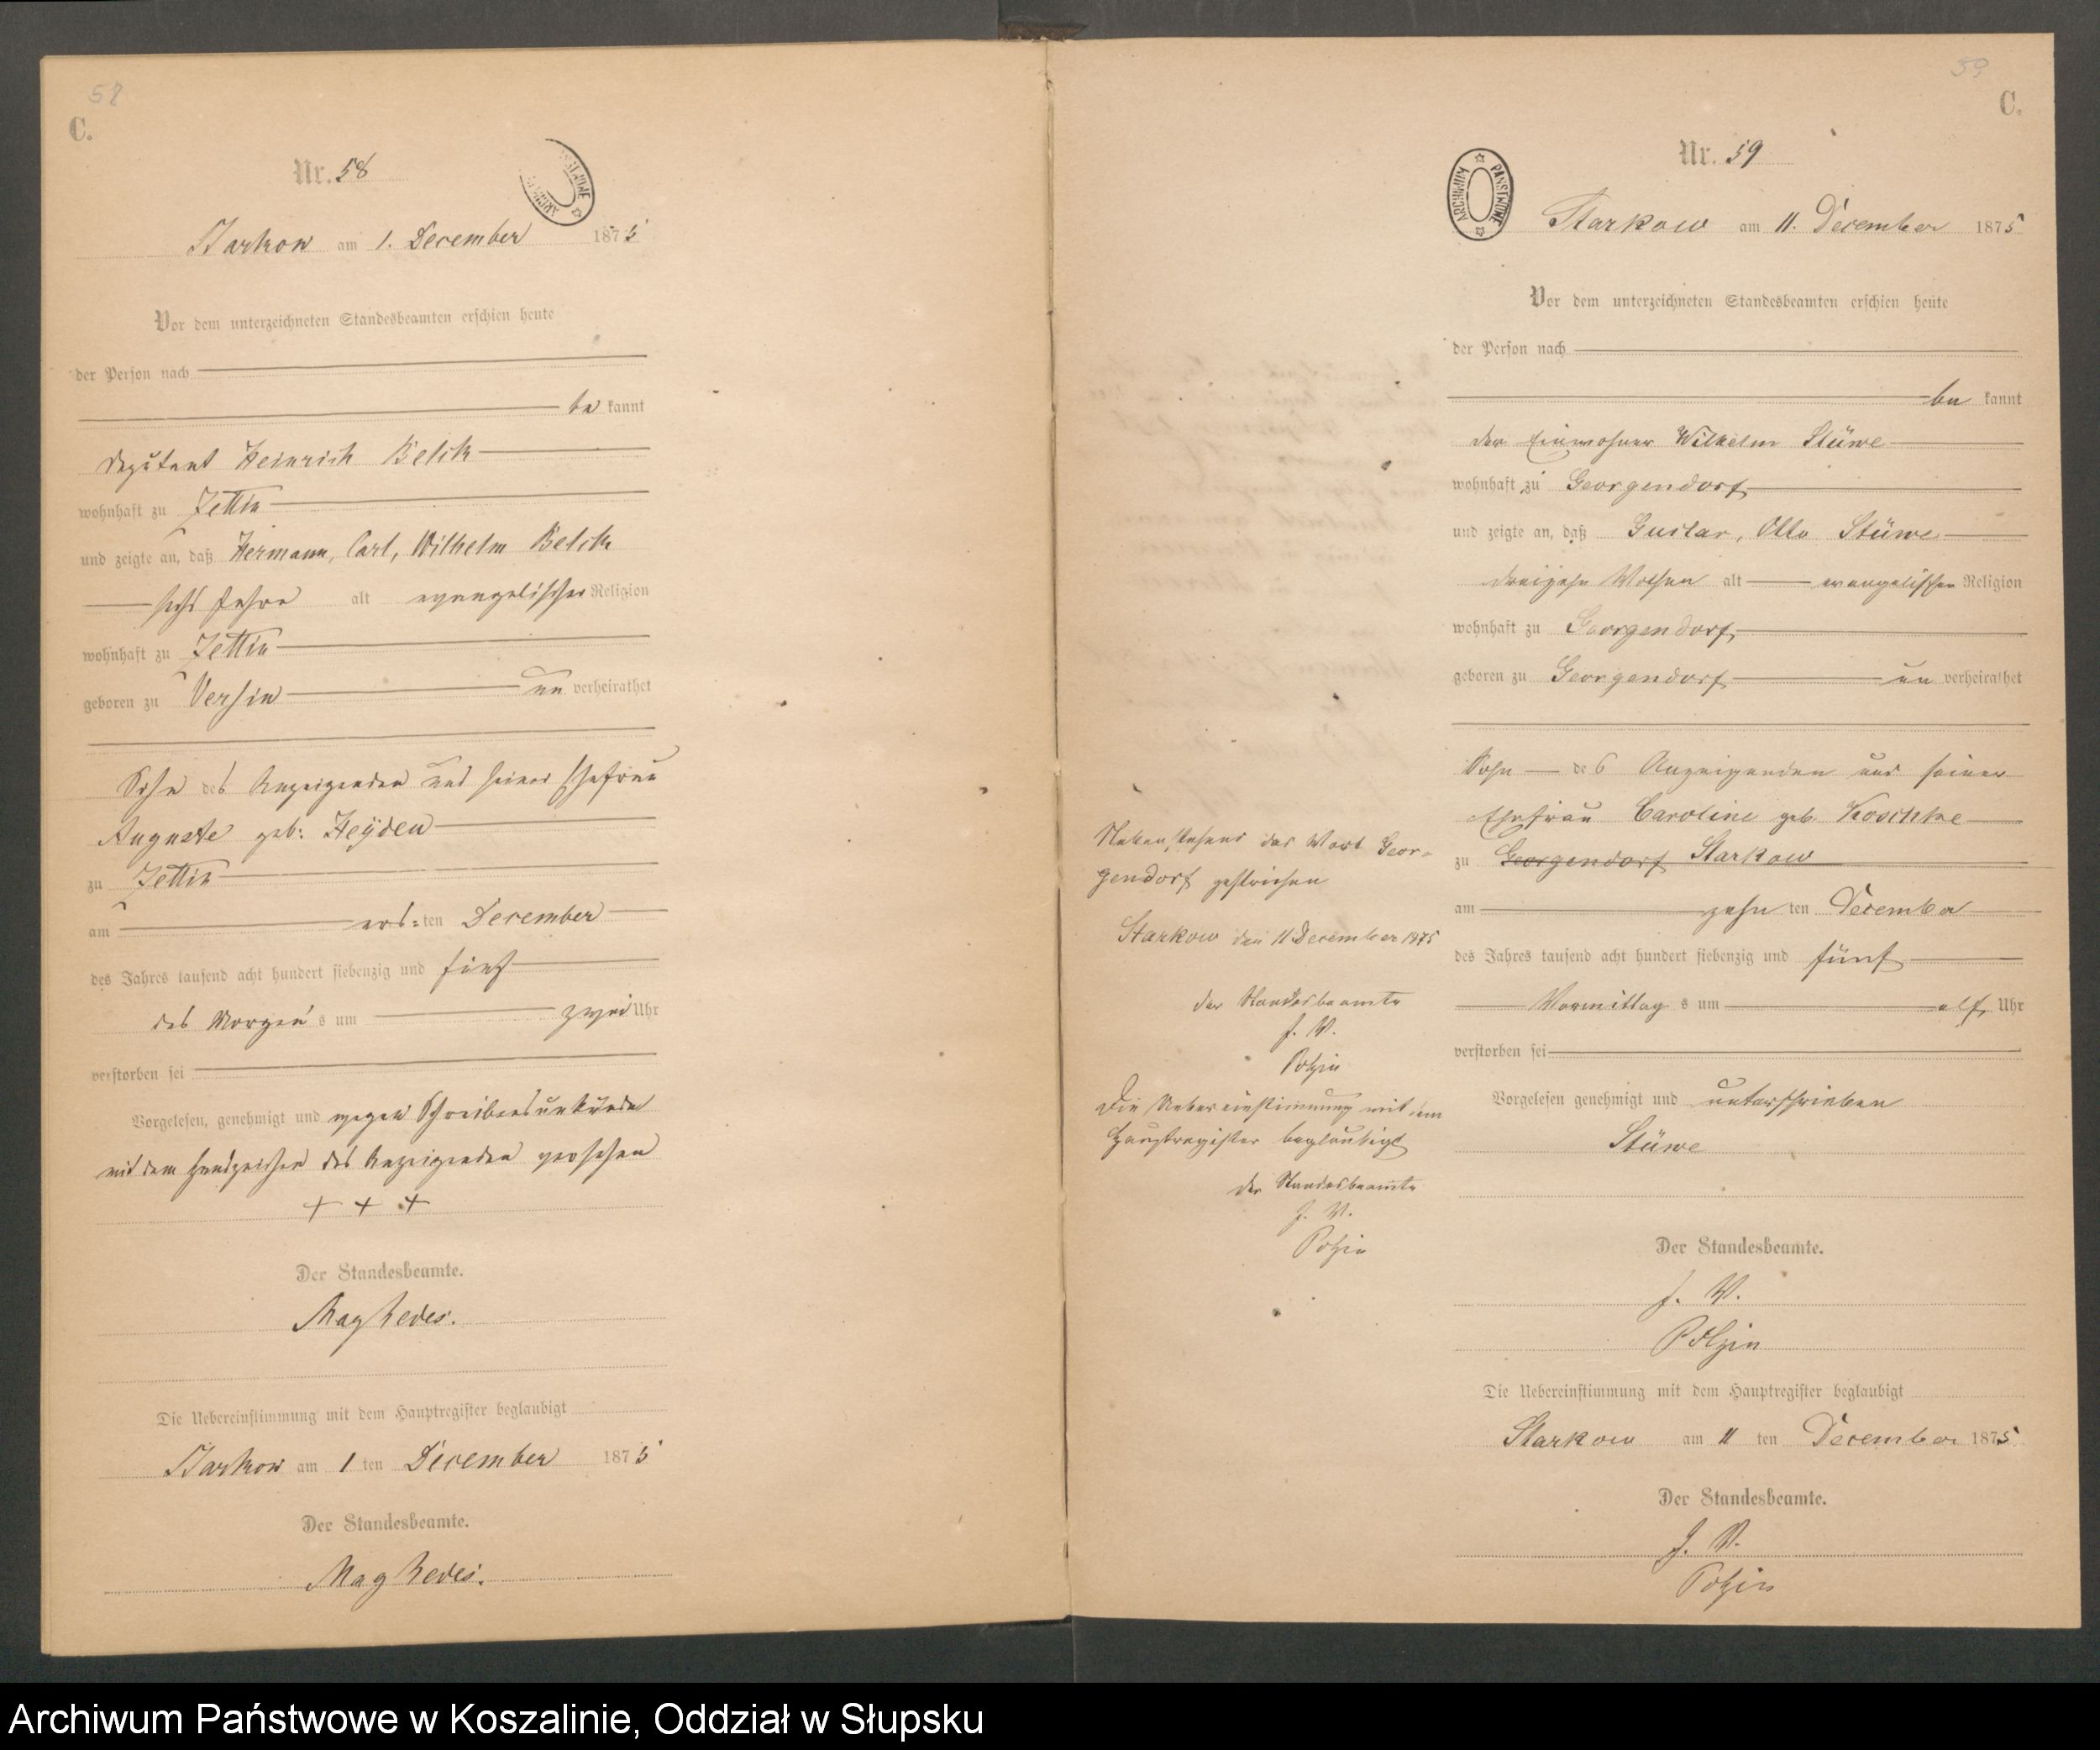 58
C.
Nr. 58
ARCHIWUM PAŃSTWOWE
Starkow am 1. December 1875
Vor dem unterzeichneten Standesbeamten erschien heute
der Person nach
be kannt
Deputant Heinrich Belck
wohnhaft zu Jettin
und zeigte an, daß Hermann, Carl, Wilhelm Belck
sechs Jahre alt evangelischer Religion
wohnhaft zu Jettin
geboren zu Versin un verheirathet
Sohn des Anzeigenden und seiner Ehefrau
Auguste geb: Heyden
zu Jettin
am ers=ten December
des Jahres tausend acht hundert siebenzig und fünf
des Morgen s um zwei Uhr
verstorben sei
Vorgelesen, genehmigt und wegen Schreibensunkunde
mit dem Handzeichen des Anzeigenden versehen
+ + +
Der Standesbeamte.
Der Uebereinstimmung mit dem Hauptregister beglaubigt
Starkow am 1 ten December 1875
Der Standesbeamte.
59
C.
Nr. 59
ARCHIWUM PAŃSTWOWE
Starkow am 11. December 1875
Vor dem unterzeichneten Standesbeamten erschien heute
der Person nach
be kannt
der Einwohner Wilhelm Stüwe
wohnhaft zu Georgendorf
und zeigte an, daß Gustav, Otto Stüwe
dreizehn Wochen alt evangelischer Religion
wohnhaft zu Georgendorf
geboren zu Georgendorf un verheirathet
Sohn des Anzeigenden und seiner
Ehefrau Caroline geb. Koschke
zu Georgendorf Starkow
am zehn ten December
des Jahres tausend acht hundert siebenzig und fünf
Vormittag s um elf Uhr
verstorben sei
Vorgelesen genehmigt und unterschrieben
Stüwe
Der Standesbeamte.
J. V.
Polzin
Die Uebereinstimmung mit dem Hauptregister beglaubigt
Starkow am 11 ten December 1875
Der Standesbeamte.
J. V.
Polzin
Nebenstehend das Wort Geor-
gendorf gestrichen
Starkow den 11 December 1875
der Standesbeamte
J. V.
Polzin
Die Uebereinstimmung mit dem
Hauptregister beglaubigt
der Standesbeamte
J. V.
Polzin
Archiwum Państwowe w Koszalinie, Oddział w Słupsku